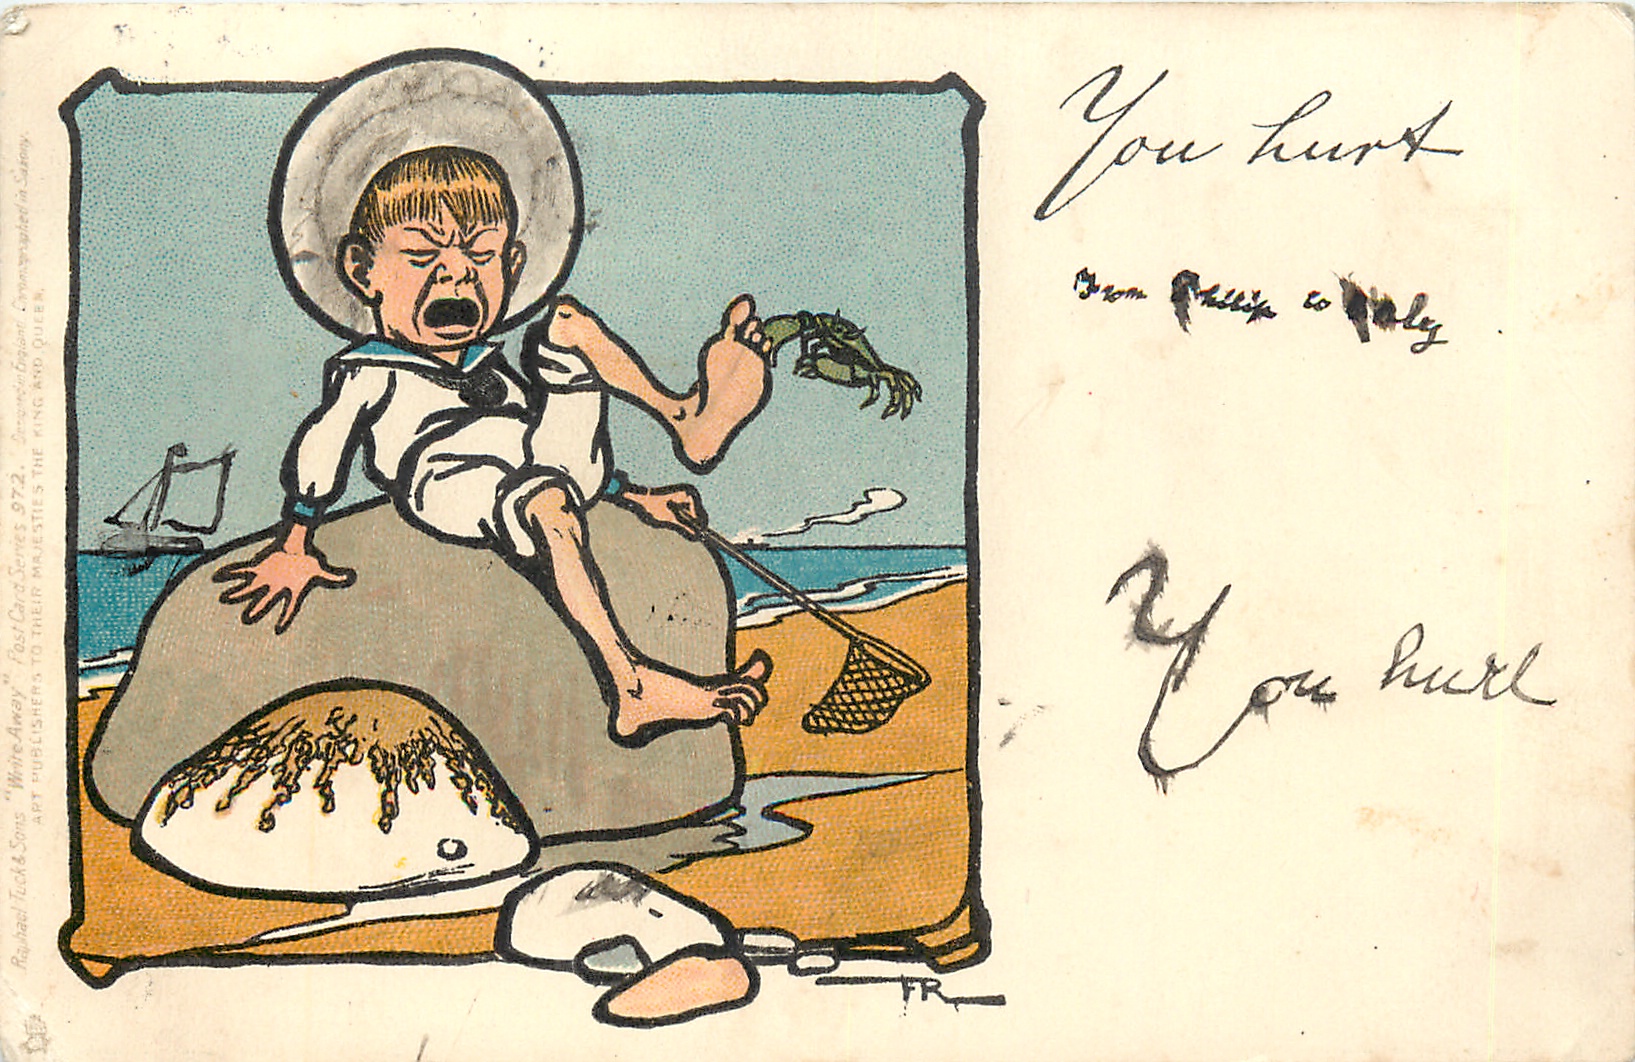 You hurt
From Philip to
You hurl
FR
Raphael Tuck & Sons "Write Away" Post Card Series 972. Designed in England. Chromographed in Saxony.
ART PUBLISHERS TO THEIR MAJESTIES THE KING AND QUEEN.